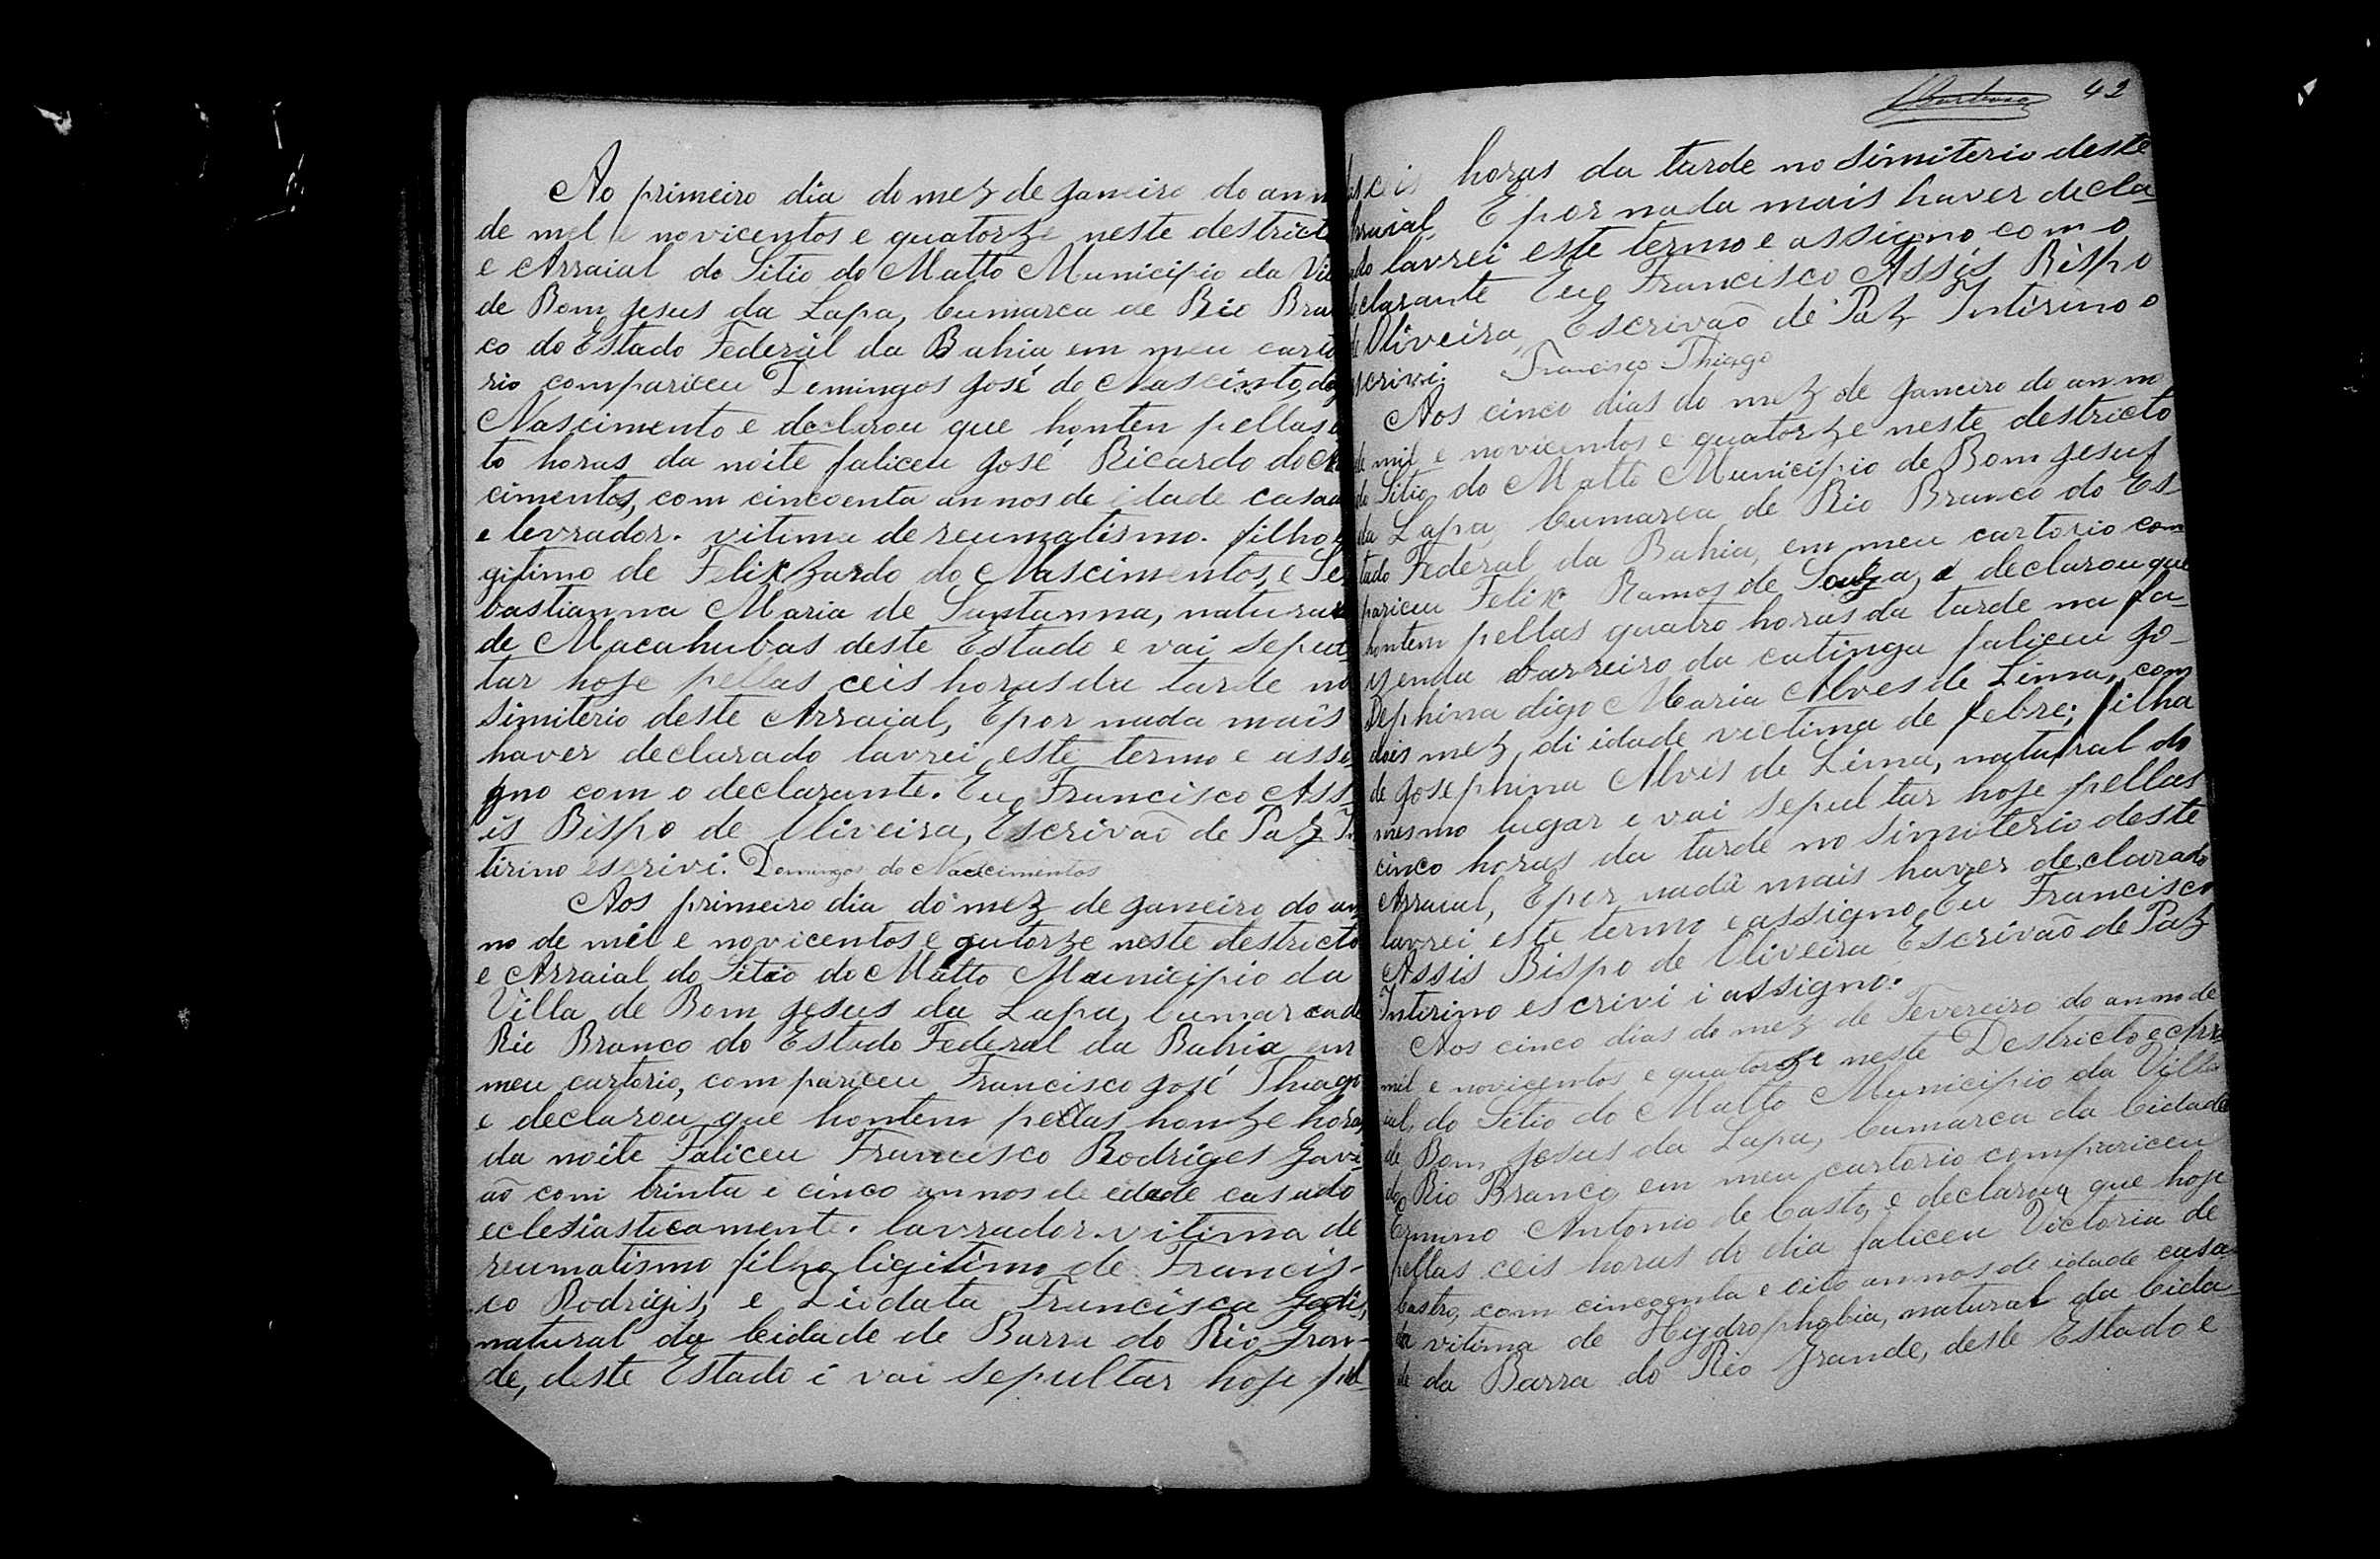 Ao primeiro dia do mez de Janeiro do ann
de mel e novicentos e quatorze neste destricto
e Arraial do Sitio do Matto Municipio da Vil
de Bom Jesus da Lapa, Cumarca de Rio Bran
co do Estado Federal da Bahia em meu carto
rio compariceu Domingos José do Nascinto, dig
Nascimento e declarou que honten pellas oi
to horas da noite faliceu José Ricardo do Na
cimentos, com cincoenta annos de idade casado
e levrador. vitima de reumatismo. filho le
gitimo de Felix Zardo do Nascimentos, e Se
bastianna Maria de Suntanna, naturar
de Macahubas deste Estado e vai sepul
tar hoje pellas ceis horas da tarde no
simiterio deste Arraial, E por nada mais
haver declarado lavrei este termo e assi
gno com o declarante. Eu, Francisco Ass
is Bispo de Oliveira, Escrivaõ de Paz In
tirino escrivi. Domingos do Nascimentos
Aos primeiro dia do mez de Janeiro do an
no de mil e novicentos e qutorze neste destricto
e Arraial do Sitio do Matto Municipio da
Villa de Bom Jesus da Lapa, Cumarca de
Rio Branco do Estado Federal da Bahia em
meu cartorio, compariceu Francisco José Thiago
e declarou que hontem pellas honze horas
da noite Faliceu Francisco Rodriges Gavi
aõ com trinta e cinco annos de edade casado
eclesiasticamente. lavrador. vitima de
reumatismo filho ligitimo de Francis-
co Rodrigis, e Liodata Francisca Godi,
natural da Cidade de Barra do Rio Gran-
de, deste Estado i vai sepultar hoje pel
42
as ceis horas da tarde no Simiterio deste
Arraial, E por nada mais haver decla
ado lavrei este termo e assigno com o
declarante Eu, Francisco Assis Bispo
de Oliveira, Escrivaõ de Paz Intirino o
escrivi. Francisco Thiago
Aos cinco dias do mez de Janeiro do anno
de mil e novicentos e quatorze neste destricto
do Sitio do Matto Municipio de Bom Jesus
da Lapa, Cumarca de Rio Branco do Es-
tado Federal da Bahia, em meu cartorio com
pariceu Felix Ramos de Souza, e declarou que
hontem pellas quatro horas da tarde na fa-
zenda Barreiro da catinga faliceu Jo-
Dephina digo Maria Alves de Lima, com
dois mez di idade victima de febre; filha
de Josephina Alvis de Lima, natural do
mesmo lugar e vai sepultar hoje pellas
cinco horas da tarde no simiterio deste
Arraial, E por nada mais haver declarado
lavrei este termo e assigno, Eu Francisco
Assis Bispo de Oliveira Escrivaõ de Paz
Intirino escrivi i assigno.
Aos cinco dias do mez de Fevereiro do anno de
mil e novicentos e quatorze neste Destricto e Arra
ial, do Sitio do Matto Municipio da Villa
de Bom Jesus da Lapa, Cumarca da Cidade
do Rio Branco em meu cartorio compariceu
Ermino Antonio de Casto, e declarou que hoje
pellas ceis horas do dia faliceu Victoria de
Castro, com cincoenta e oito annos de idade casa
da vitima de Hydrophobia, natural da Cida-
de da Barra do Rio Grande, deste Estado e